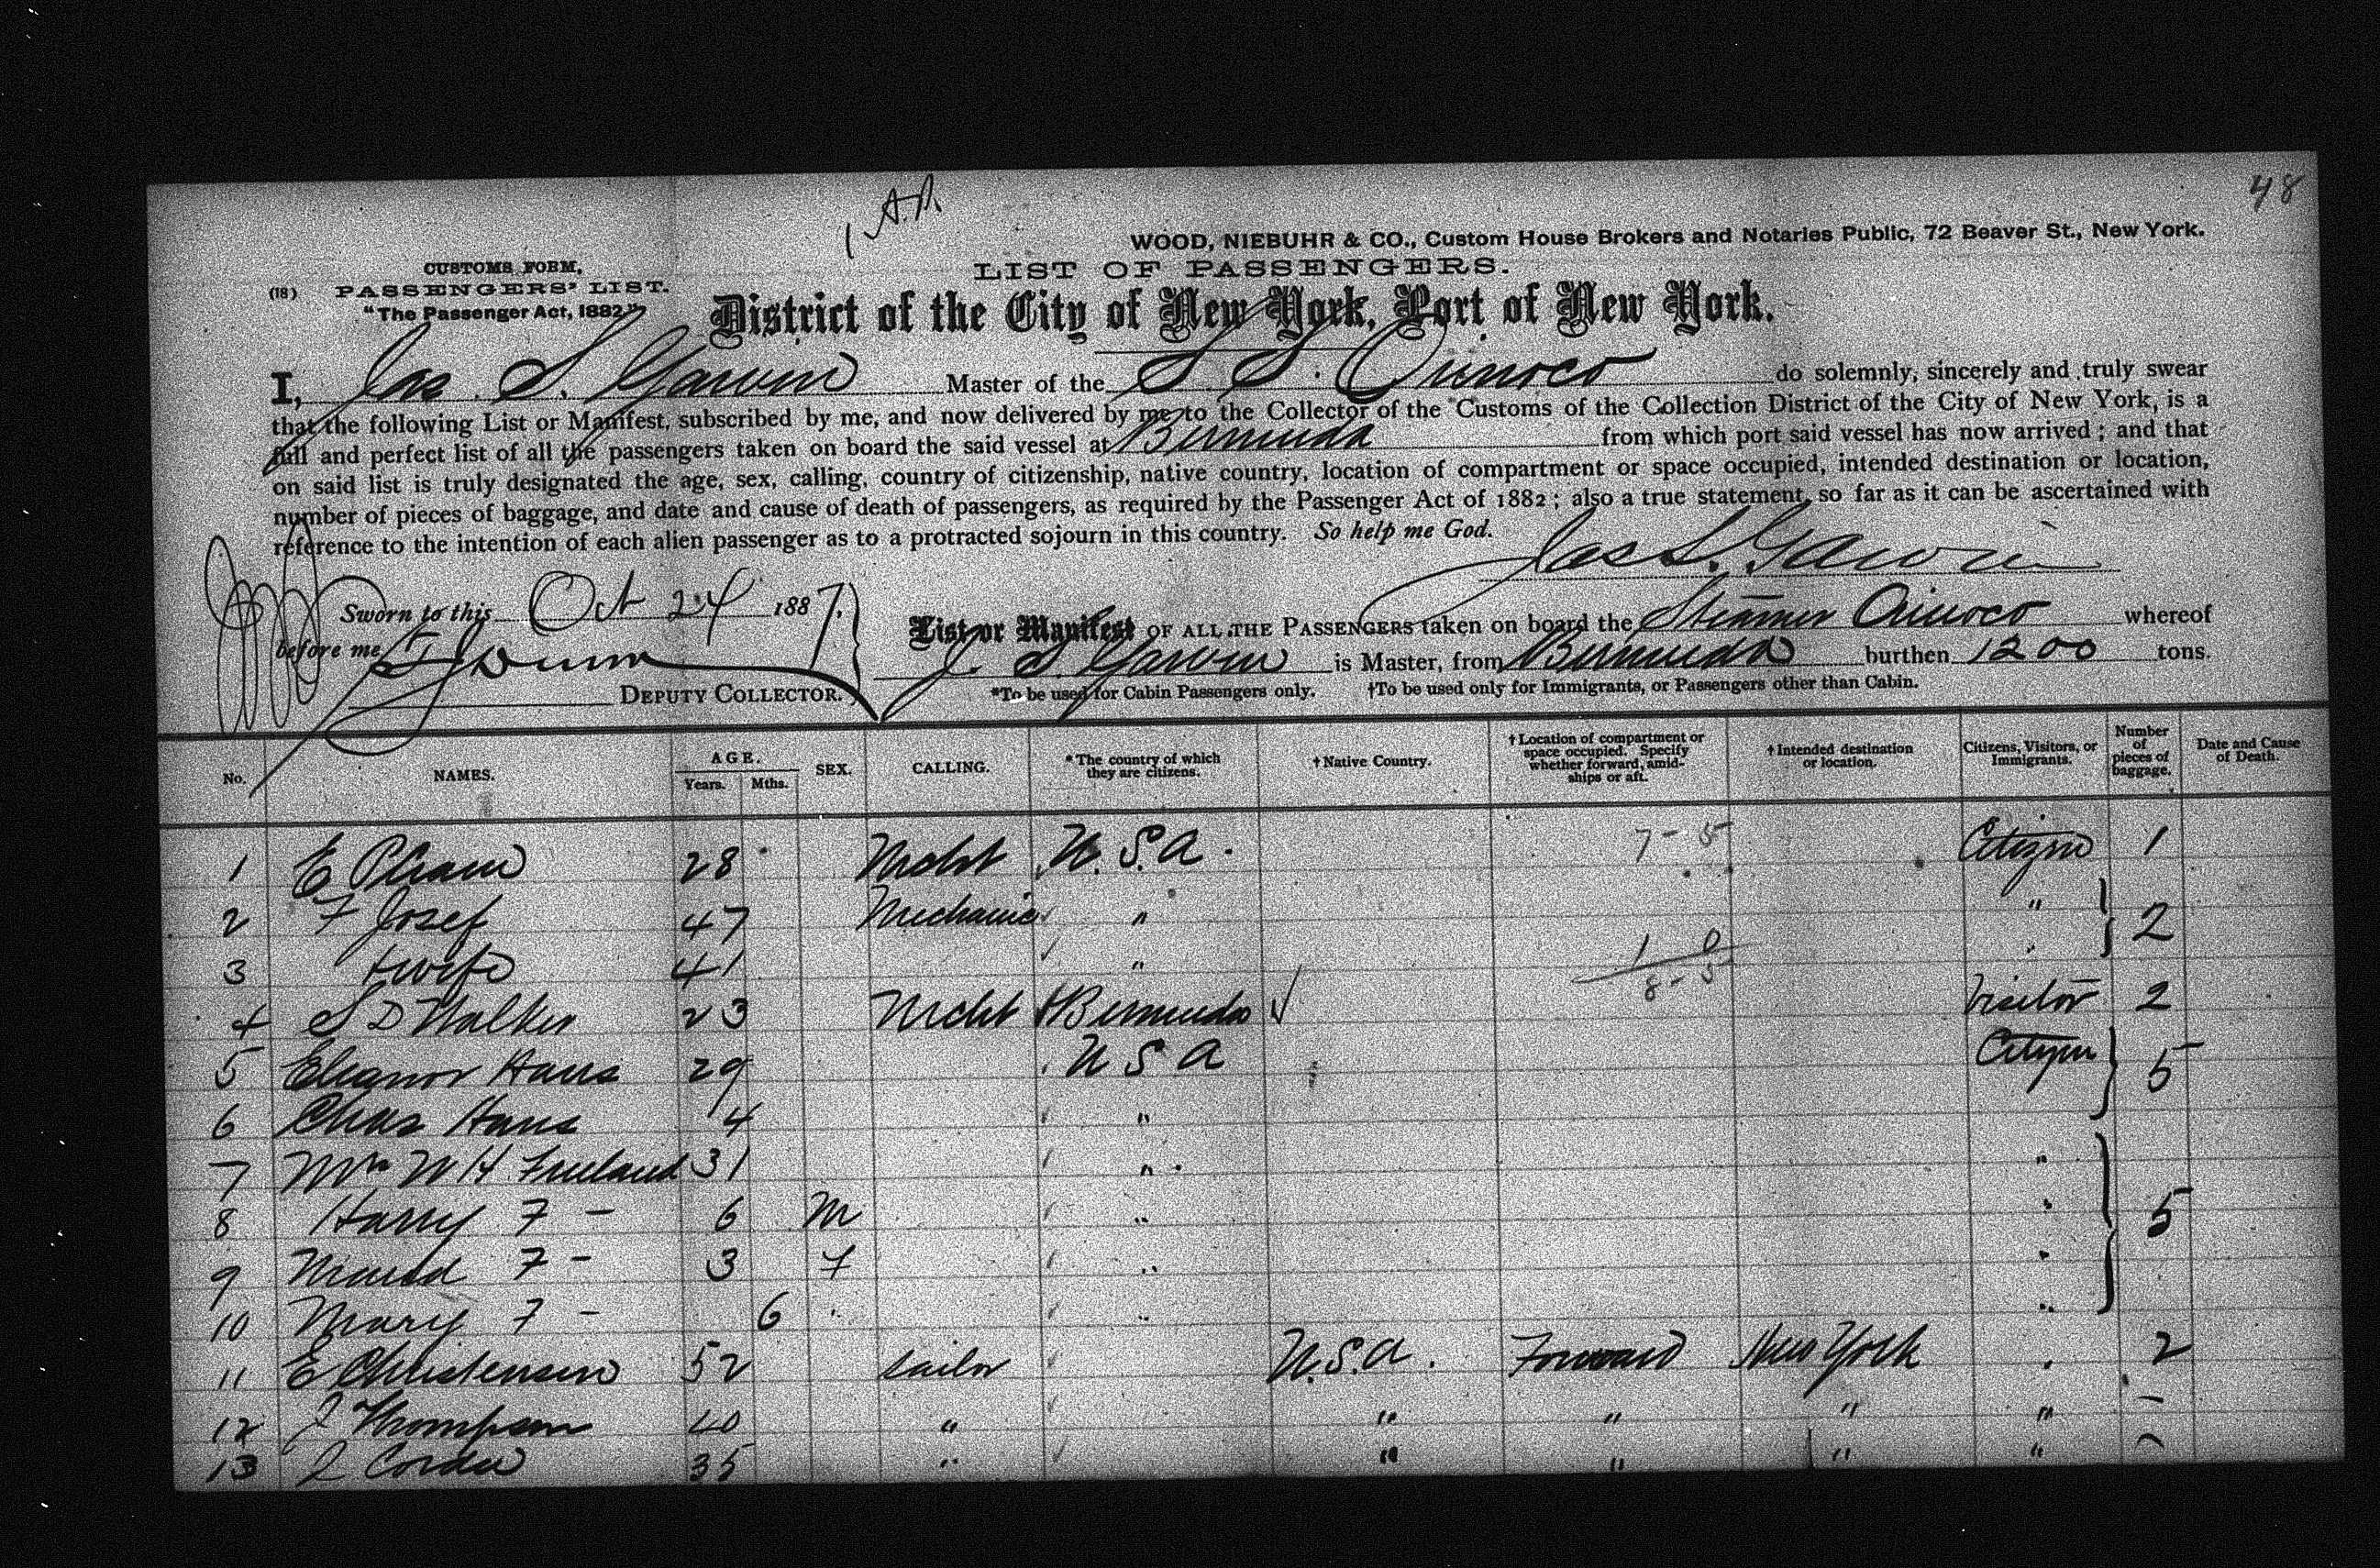 48
WOOD, NIEBUHR & CO., Custom House Brokers and Notaries Public, 72 Beaver St., New York.
LIST OF PASSENGERS.
CUSTOMS FORM,
(18) PASSENGERS' LIST.
"The Passenger Act, 1882."
District of the City of New York, Port of New York.
I, Jas. S. Garvin Master of the S S. Orinoco do solemnly, sincerely and truly swear
that the following List or Manifest, subscribed by me, and now delivered by me to the Collector of the Customs of the Collection District of the City of New York, is a
full and perfect list of all the passengers taken on board the said vessel at Bermuda from which port said vessel has now arrived; and that
on said list is truly designated the age, sex, calling, country of citizenship, native country, location of compartment or space occupied, intended destination or location,
number of pieces of baggage, and date and cause of death of passengers, as required by the Passenger Act of 1882; also a true statement, so far as it can be ascertained with
reference to the intention of each alien passenger as to a protracted sojourn in this country. So help me God.
Jas S. Garvin
Sworn to this Oct 24 1887.
before me Dunn
DEPUTY COLLECTOR.
List or Manifest OF ALL THE PASSENGERS taken on board the Steamer Orinoco whereof
J. S. Garvin is Master, from Bermuda burthen 1200 tons.
*To be used for Cabin Passengers only. †To be used only for Immigrants, or Passengers other than Cabin.
No. NAMES. AGE. Years. Mths. SEX. CALLING. *The country of which they are citizens. †Native Country. †Location of compartment or space occupied. Specify whether forward, amidships or aft. †Intended destination or location. Citizens, Visitors, or Immigrants. Number of pieces of baggage. Date and Cause of Death.
1 E 28 Mcht U.S.A. 7-5 Citizen 1
2 F Josef 47 Mechanic " " 2
3 + wife 41 " 1 0 "
4 S D Walker 23 Mcht Bermuda 8-5 Visitor 2
5 Eleanor Haus 29 U S A Citizen 5
6 Chas Haus 4 "
7 Mrs W H Freeland 31 " "
8 Harry F - 6 M " " 5
9 Maud F - 3 F " "
10 Mary F - 6 " " "
11 E Christensen 52 Sailor U.S.A. Forward New York " 2
12 J Thompson 40 " " " " " -
13 J 35 " " " " " -